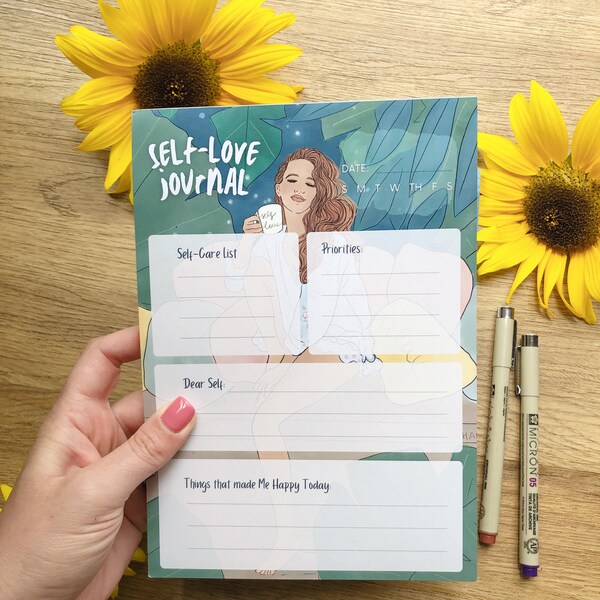 SELF-LOVE
JOURNAL
DATE:
S M T W TH F S
self
love
Self-Care List
Priorities:
Dear Self:
Things that made Me Happy Today:
MICRON 05